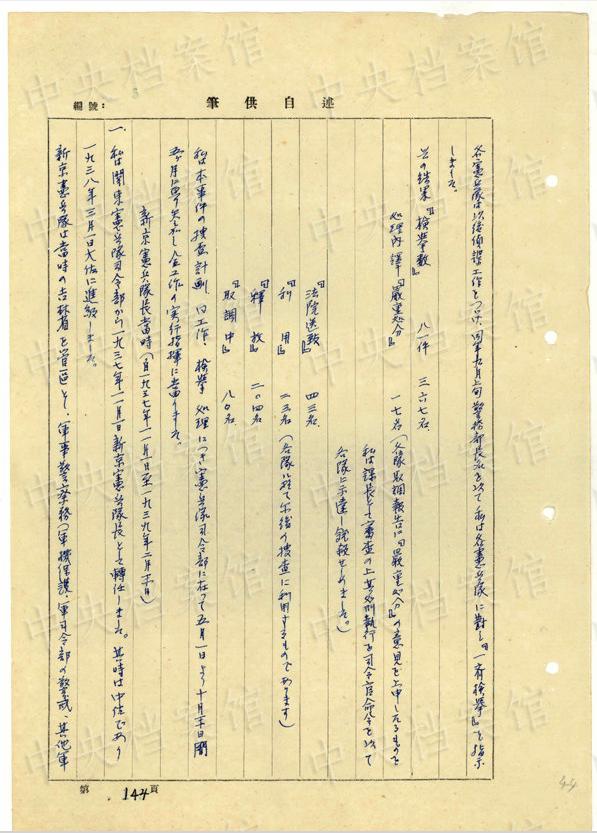 述自供筆
編號:
各憲兵隊は以後偵諜工作をつづけ、同年九月上旬警務部長名を以て私は各憲兵隊に對し『一斉検挙』を指示
しました。
其の結果『検挙数』 八一件 三六七名
処理内譯『嚴重処分』 一七名(各隊取調報告に『嚴重処分』の意見を上申したるもので
私は課長として審査の上其の処刑執行を司令官命令を以て
各隊に示達し銃殺せしめました。)
『法院送致』 四三名
『利用』 二三名(各隊に於て尓後の捜査に利用するものであります)
『釋放』 二〇四名
『取調中』 八〇名
私は本事件の捜査計劃 工作、検挙、処理につき憲兵隊司令部に在つて五月一日より十月三十日間
五ヶ月に
全工作の実行指揮に当りました。
新京憲兵隊長當時(自一九三七年一一月一日至一九三九年二月 日)
一、私は関東憲兵隊司令部から一九三七年一一月一日新京憲兵隊長として轉任しました。其時は中佐であり
一九三八年三月一日大佐に進級しました。
新京憲兵隊は當時の吉林省を管區とし、軍事警察務(軍機保護、軍司令部の警戒、其他軍
第 144 頁
44
中央档案馆